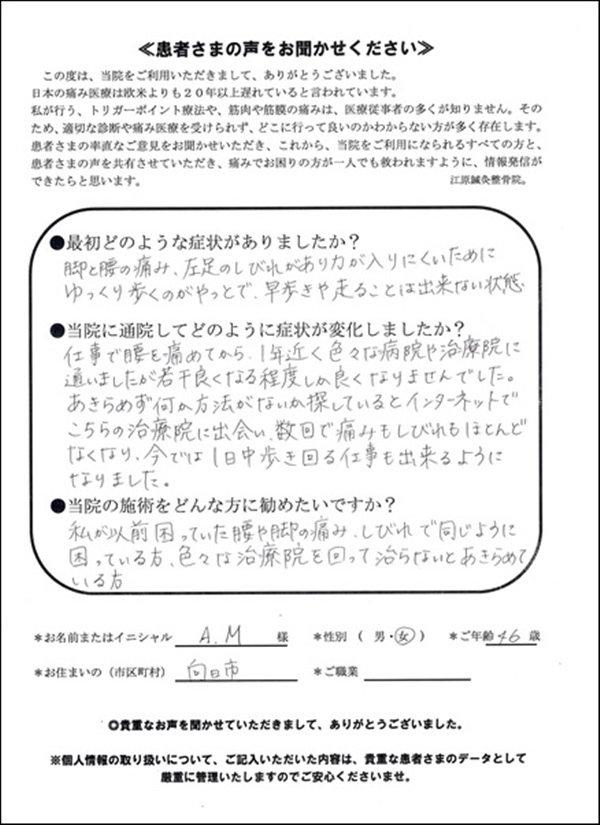 ≪患者さまの声をお聞かせください≫
この度は、当院をご利用いただきまして、ありがとうございました。
日本の痛み医療は欧米よりも２０年以上遅れていると言われています。
私が行う、トリガーポイント療法や、筋肉や筋膜の痛みは、医療従事者の多くが知りません。その
ため、適切な診断や痛み医療を受けられず、どこに行って良いのかわからない方が多く存在します。
患者さまの率直なご意見をお聞かせいただき、これから、当院をご利用になられるすべての方と、
患者さまの声を共有させていただき、痛みでお困りの方が一人でも救われますように、情報発信が
できたらと思います。 江原鍼灸整骨院。
●最初どのような症状がありましたか？
脚と腰の痛み、左足のしびれがあり力が入りにくいために
ゆっくり歩くのがやっとで、早歩きや走ることは出来ない状態
●当院に通院してどのように症状が変化しましたか？
仕事で腰を痛めてから、1年近く色々な病院や治療院に
通いましたが若干良くなる程度しか良くなりませんでした。
あきらめず何か方法がないか探しているとインターネットで
こちらの治療院に出会い、数回で痛みもしびれもほとんど
なくなり、今では1日中歩き回る仕事も出来るように
なりました。
●当院の施術をどんな方に勧めたいですか？
私が以前困っていた腰や脚の痛み、しびれで同じように
困っている方、色々な治療院を回って治らないとあきらめて
いる方
＊お名前またはイニシャル A.M 様 ＊性別（ 男・女 ） ＊ご年齢 46 歳
＊お住まいの（市区町村） 向日市 ＊ご職業
◎貴重なお声を聞かせていただきまして、ありがとうございました。
※個人情報の取り扱いについて、ご記入いただいた内容は、貴重な患者さまのデータとして
厳重に管理いたしますのでご安心くださいませ。